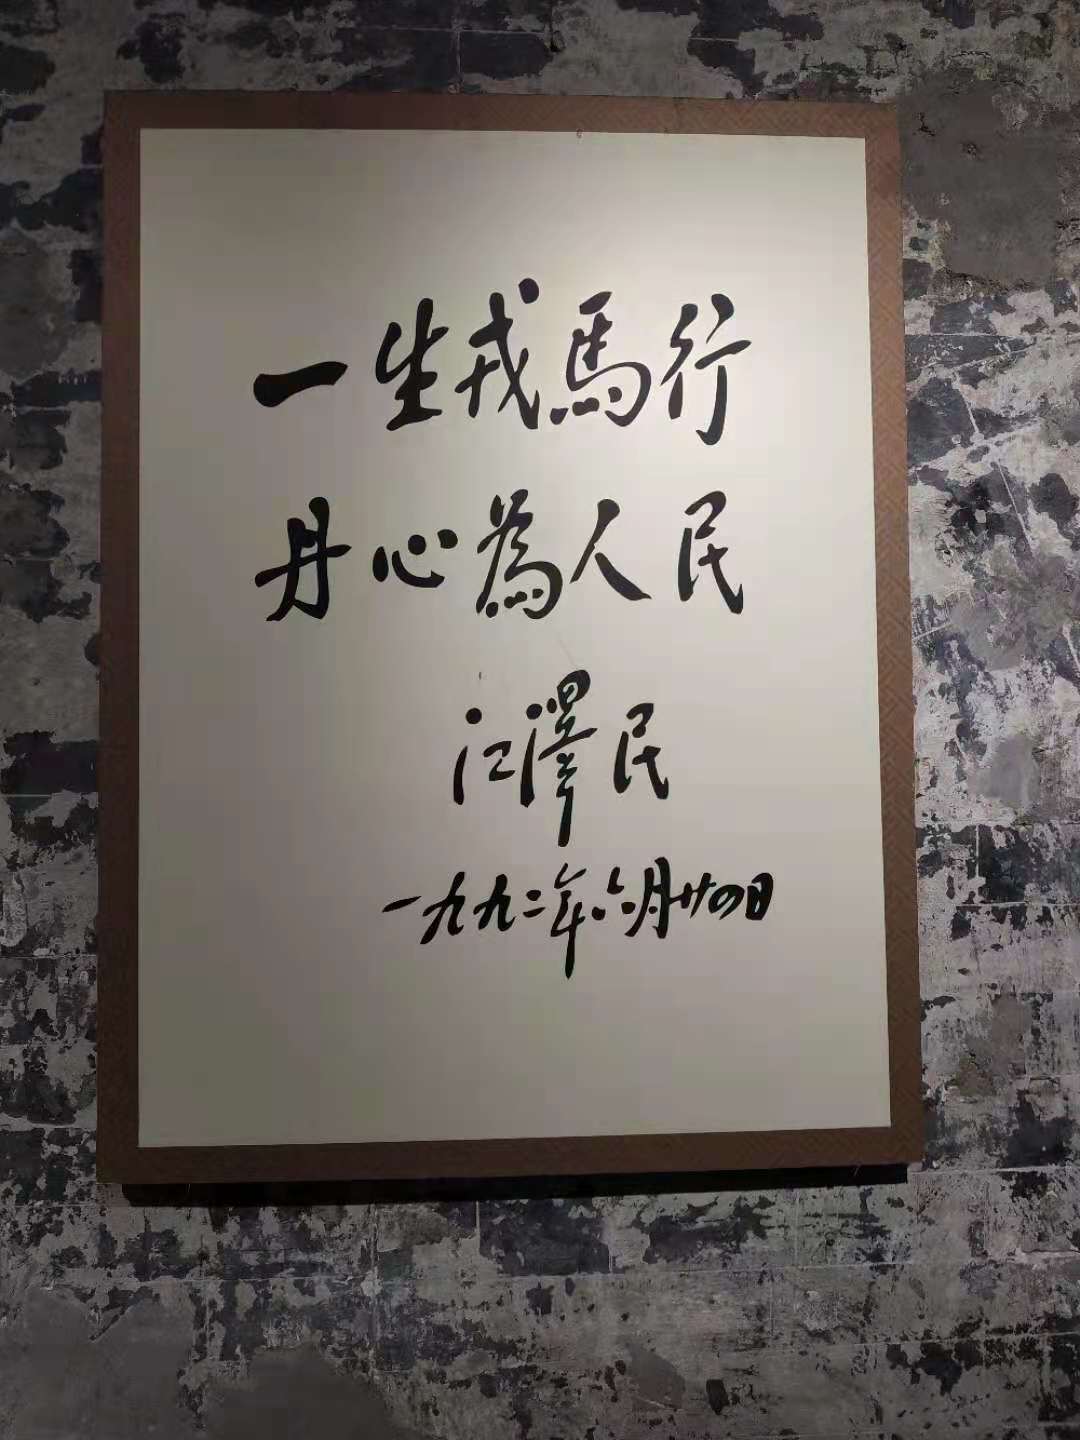 一生戎馬行
丹心為人民
江澤民
一九九二年六月廿四日